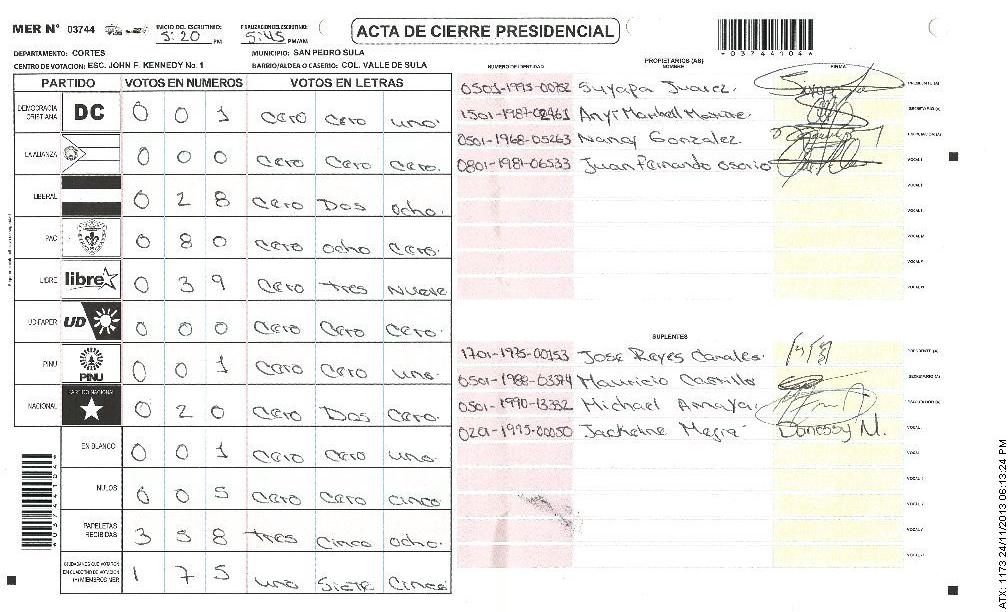 MER N° 03744 INICIO DEL ESCRUTINIO: 5:20 PM FINALIZACION DEL ESCRUTINIO: 5:45 PM/AM
ACTA DE CIERRE PRESIDENCIAL
*03744104*
DEPARTAMENTO: CORTES MUNICIPIO: SAN PEDRO SULA
CENTRO DE VOTACION: ESC. JOHN F. KENNEDY No. 1 BARRIO/ALDEA O CASERIO: COL. VALLE DE SULA
PARTIDO VOTOS EN NUMEROS VOTOS EN LETRAS
DEMOCRACIA CRISTIANA DC 0 0 1 Cero Cero uno.
LA ALIANZA 0 0 0 Cero Cero Cero.
LIBERAL 0 2 8 Cero Dos ocho.
PAC 0 8 0 Cero ocho Cero.
LIBRE libre 0 3 9 Cero tres Nueve
UD-FAPER UD 0 0 0 Cero Cero Cero.
PINU PINU 0 0 1 Cero Cero uno.
NACIONAL PARTIDO NACIONAL 0 2 0 Cero Dos Cero.
EN BLANCO 0 0 1 Cero Cero uno.
NULOS 0 0 5 Cero Cero cinco
PAPELETAS RECIBIDAS 3 5 8 tres Cinco ocho.
CIUDADANOS QUE VOTARON EN CUADERNO DE VOTACION (+) MIEMBROS MER 1 7 5 uno Siete Cinco
PROPIETARIOS (AS)
NUMERO DE IDENTIDAD NOMBRE FIRMA
0501-1995-00752 Suyapa Juarez. PRESIDENTE (A)
1501-1987-02461 Anyi Maribell SECRETARIO (A)
0501-1968-05263 Nancy Gonzalez. ESCRUTADOR (A)
0801-1981-06533 Juan Fernando osorio VOCAL I
SUPLENTES
1701-1975-00153 Jose Reyes Canales. PRESIDENTE (A)
0501-1988-03374 Mauricio Castillo SECRETARIO (A)
0501-1990-13332 Michael Amaya. ESCRUTADOR (A)
0201-1995-00050 Jackeline Mejia Danessy M. VOCAL I
ATX: 1173 24/11/2013 06:13:24 PM